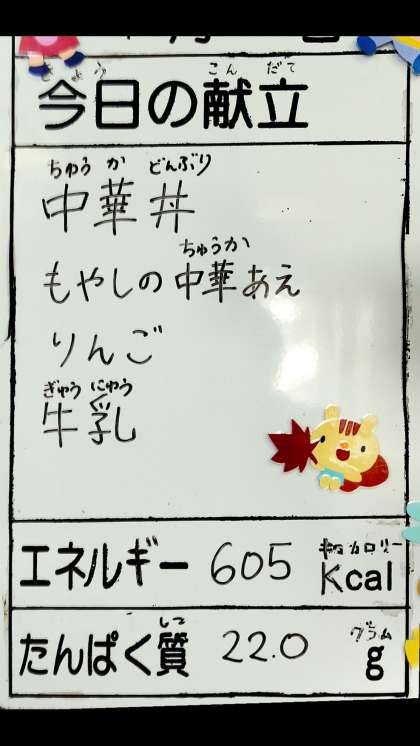 きょう こん だて
今日の献立
ちゅう か どんぶり
中華丼
ちゅうか
もやしの中華あえ
りんご
ぎゅう にゅう
牛乳
キロカロリー
エネルギー 605 Kcal
しつ グラム
たんぱく質 22.0 g